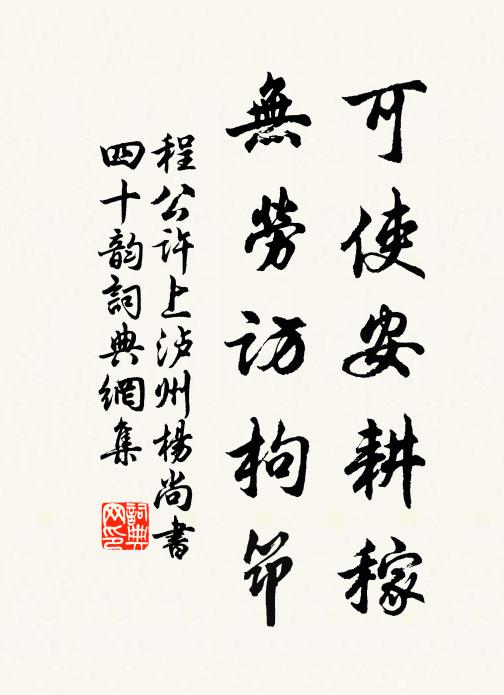 可使安耕稼
無勞訪枸筇
程公許上泸州楊尚書
四十韵詞典網集
詞典
网印